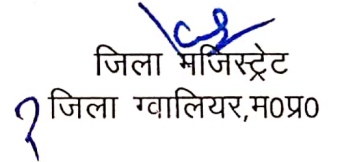 जिला मजिस्ट्रेट
जिला ग्वालियर,म0प्र0